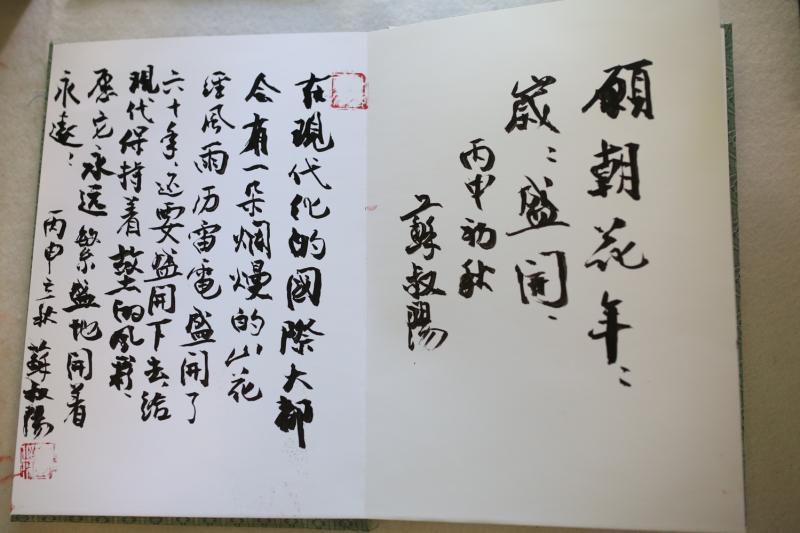 願朝花年：
歲：盛開、
丙申初秋
蘇叔陽
在現代化的國際大都
会有一朵爛熳的山花
经風雨历雷電盛開了
六十年、还要盛開下去给
現代保持着的風彩、
愿它永远繁盛地開着
永遠：
丙申立秋 蘇叔陽